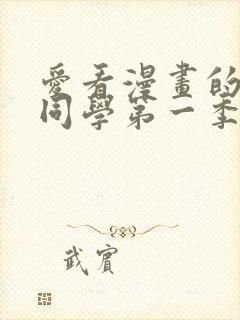 愛看漫畫的
同學第一季
武賓